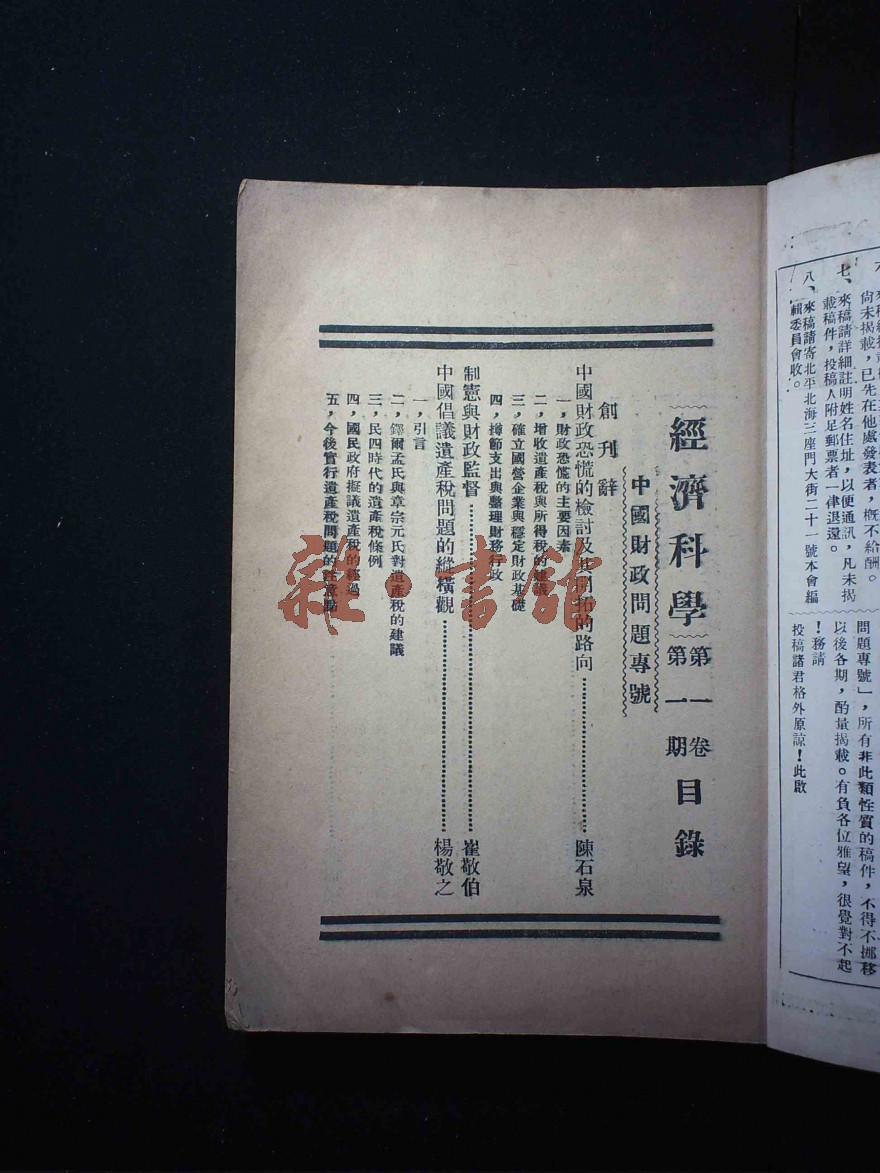 來稿請詳細註明姓名住址，以便通訊，凡未揭
七、
尚未揭載，已先在他處發表者，概不給酬。
載稿件，投稿人附足郵票者一律退還。
八、來稿請寄北平北海三座門大街二十一號本會編
輯委員會收。
問題專號」，所有非此類性質的稿件，不得不挪移
以後各期，酌量揭載。有負各位雅望，很覺對不起
！務請
投稿諸君格外原諒！此啟
經濟科學 第一卷 第一期 目錄
中國財政問題專號
創刊辭
中國財政恐慌的檢討及其開拓的路向 陳石泉
一，財政恐慌的主要因素
二，增收遺產稅與所得稅的建議
三，確立國營企業與穩定財政基礎
四，撙節支出與整理財務行政
制憲與財政監督 崔敬伯
中國倡議遺產稅問題的縱橫觀 楊敬之
一，引言
二，鐸爾孟氏與章宗元氏對遺產稅的建議
三，民四時代的遺產稅條例
四，國民政府擬議遺產稅的經過
五，今後實行遺產稅問題的注意點
雜·書館